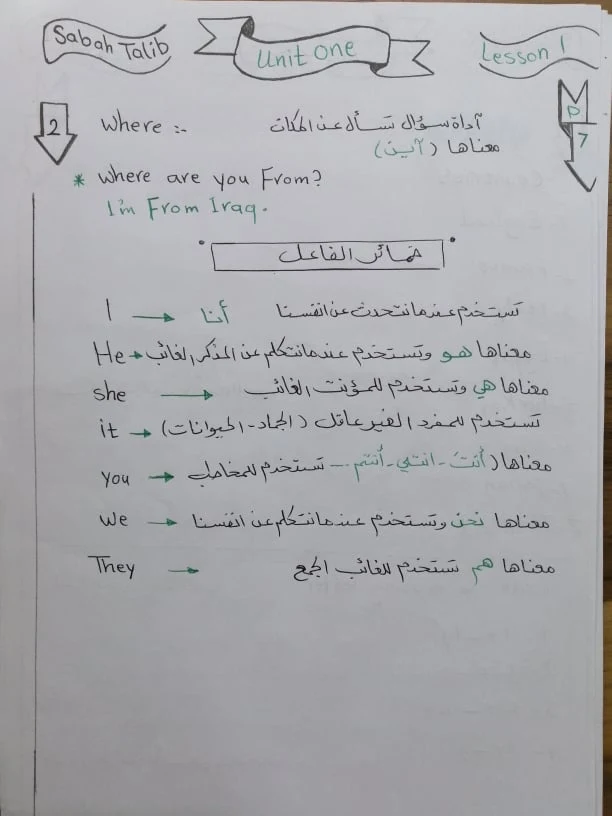 Sabah Talib
Unit One
Lesson 1
P
7
2
Where :- أداة سؤال تسأل عن المكان
معناها (أين)
* Where are you From?
I'm From Iraq.
ضمائر الفاعل
I → أنا تستخدم عندما نتحدث عن انفسنا
He → معناها هو وتستخدم عندما نتكلم عن المذكر الغائب
she → معناها هي وتستخدم للمؤنث الغائب
it → تستخدم للمفرد الغير عاقل (الجماد - الحيوانات)
you → معناها (أنتَ - انتي - أنتم ... تستخدم للمخاطب
we → معناها نحن وتستخدم عندما نتكلم عن انفسنا
They → معناها هم تستخدم للغائب الجمع